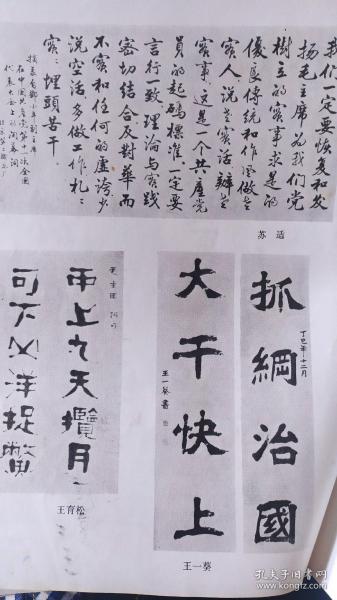 我们一定要恢复和发
扬毛主席为我们党
树立的实事求是的
优良传统和作风做老
实人说老实话办老
实事这是一个共产党
员的起码标准一定要
言行一致理论与实践
密切结合反对华而
不实和任何的虚夸少
说空话多做工作扎扎
实实埋头苦干
摘录自邓小平副主席
在中国共产党第十一次全国
代表大会上的闭幕词
苏适
抓綱治國
丁巳年十二月
大干快上
王一葵書
王一葵
可上九天攬月
可下五洋捉鱉
王育松
孔夫子旧书网